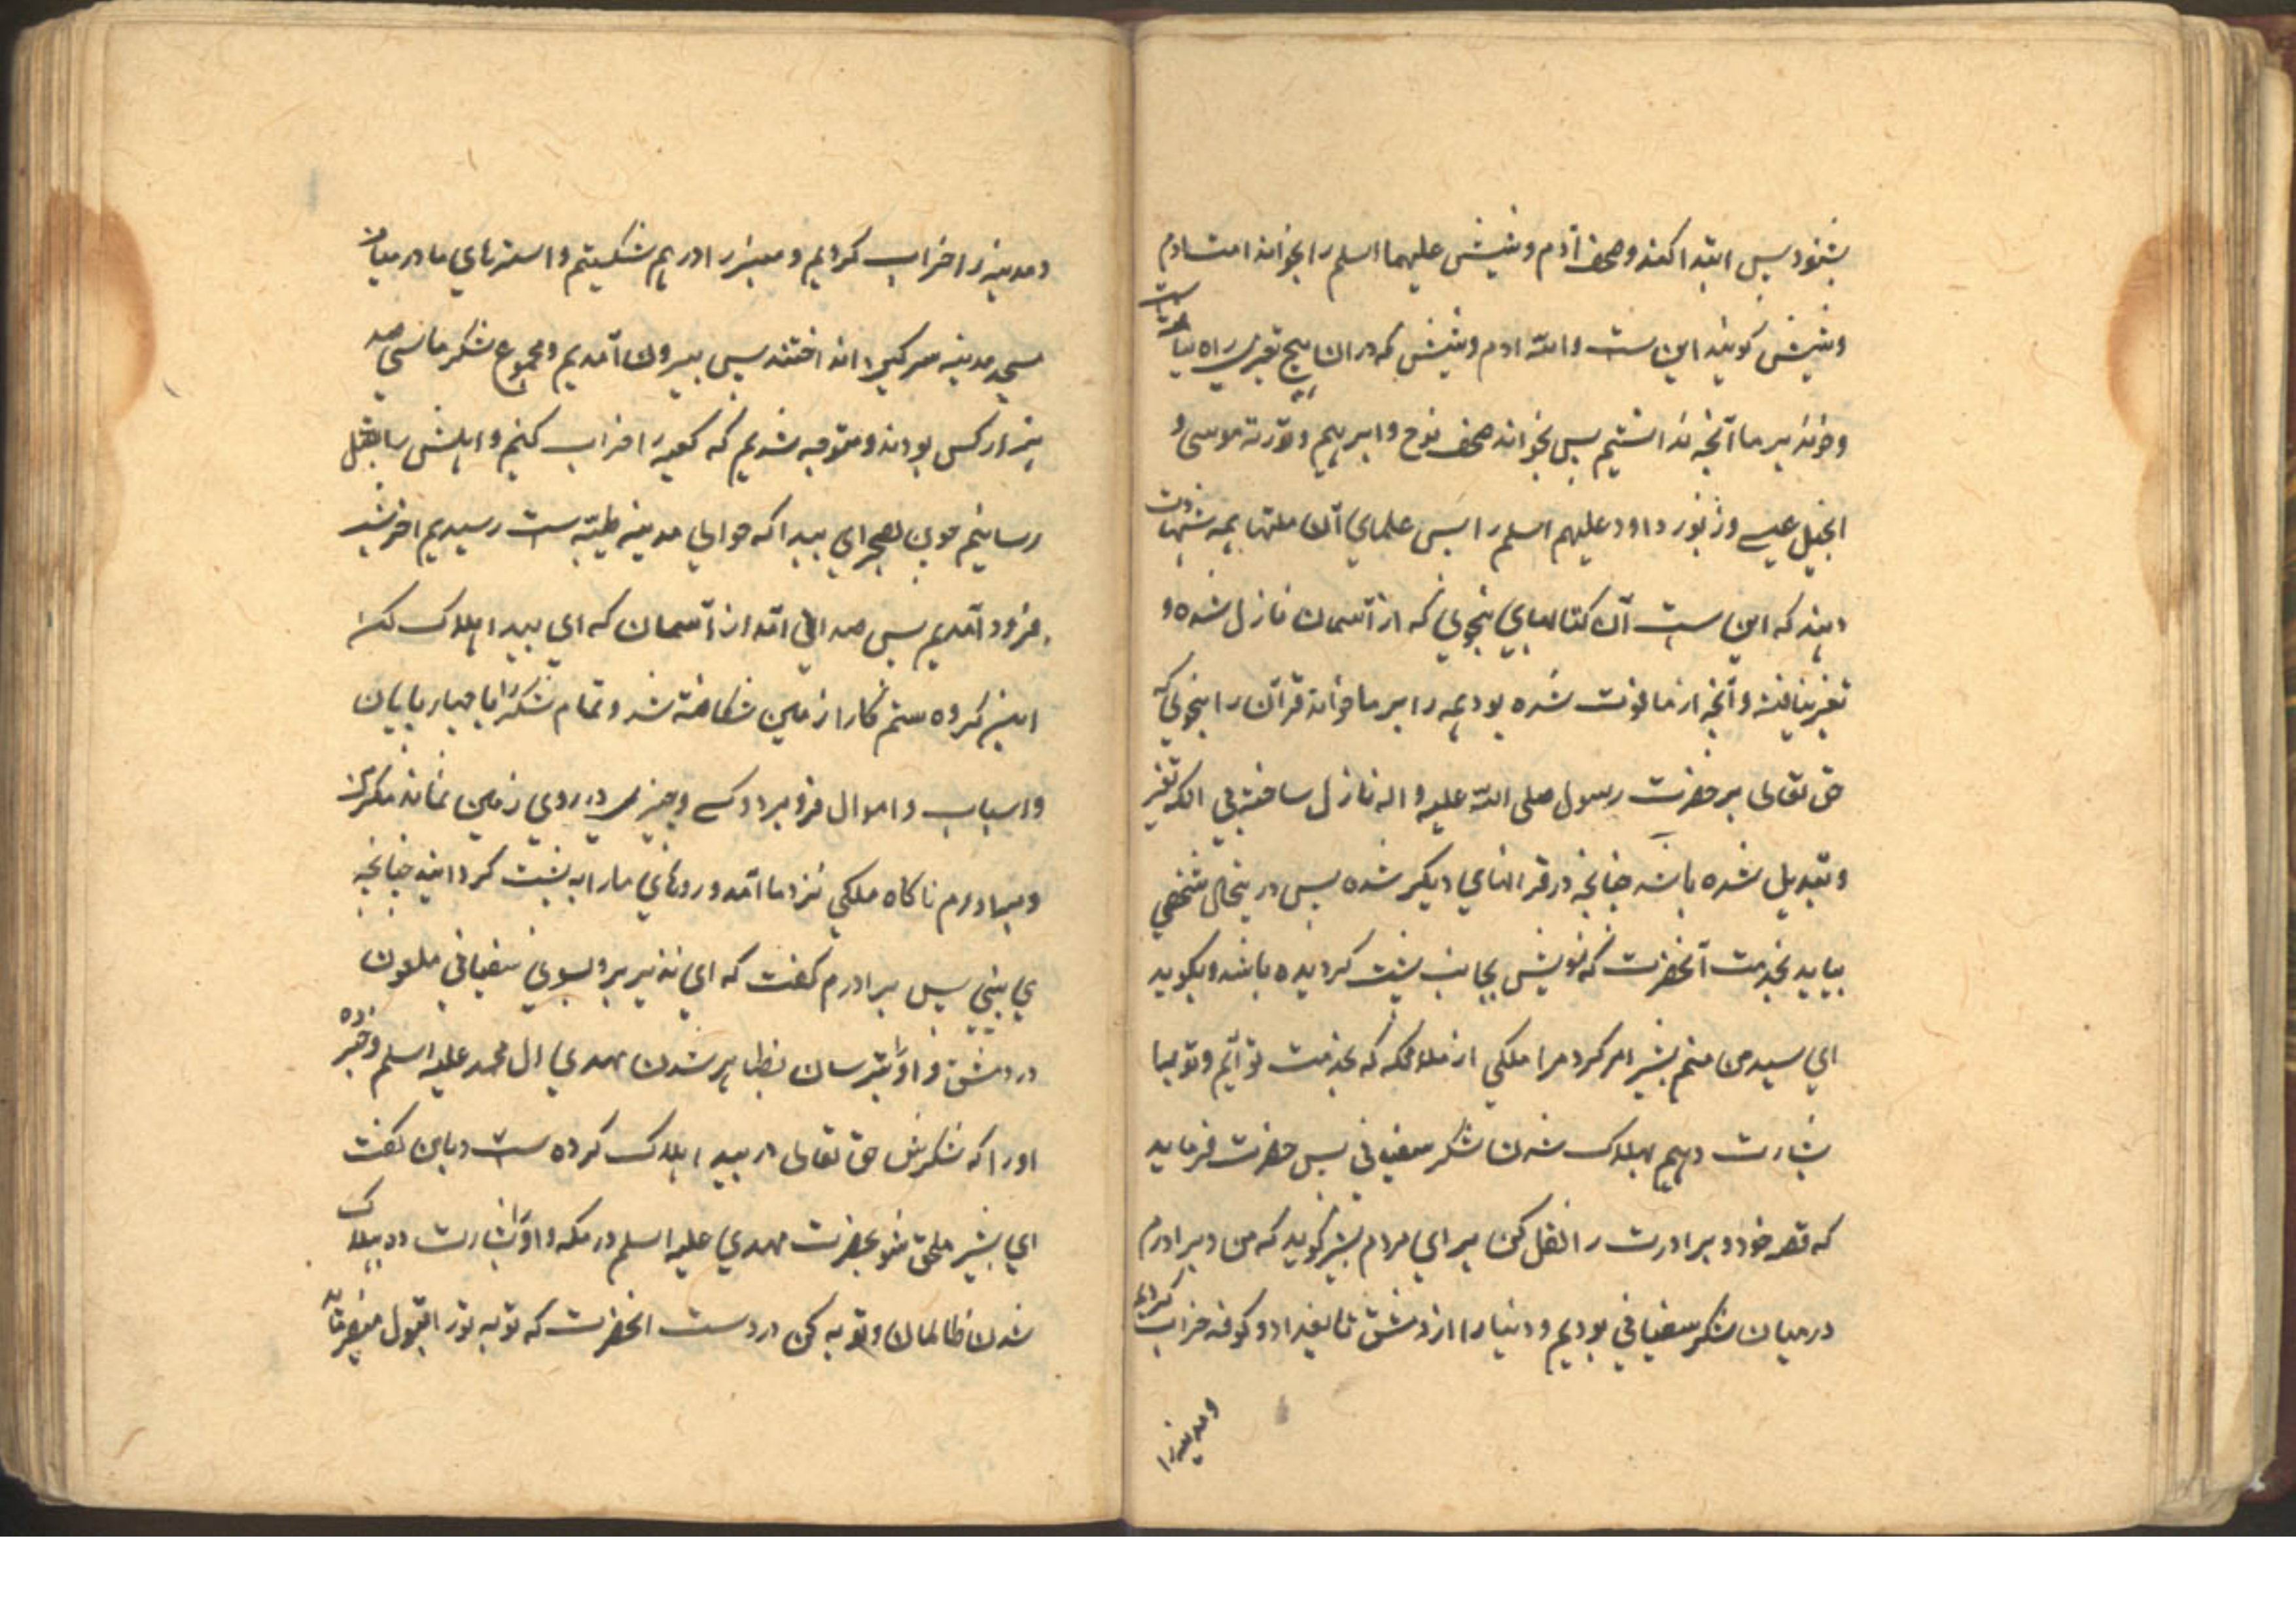 بشنود پس ابتدا کند و صحف آدم و شیث علیهما السلم را بخواند امت ادم
و شیث کویند این ست و الله ادم و شیث که در ان هیچ تغیری راه نیافته ست
و خوند بر ما آنچه ندانستیم پس بخواند صحف نوح و ابرهیم و تورته موسی و
انجیل عیسی و زبور داود علیهم السلم را پس علمای آن ملتها همه شهادت
دهند که این ست آن کتابهای بنحوی که از آسمان نازل شده و
تغیر نیافته و آنچه از ما فوت شده بود همه را بر ما خواند قرآن را بنحوی که
حق تعالی بر حضرت رسول صلی الله علیه و اله نازل ساخته بی انکه تغیر
و تبدیل شده باشد چنانچه در قرانهای دیکر شده پس درینحال شخصی
بیاید بخدمت آنحضرت که رویش بجانب پشت کردیده باشد و بکوید
ای سید من منم بشیر امر کرد مرا ملکی از ملائکه که بخدمت تو آیم و تو را
بشارت دهم بهلاک شدن لشکر سفیانی پس حضرت فرماید
که قصه خود و برادرت را نقل کن برای مردم بشیر کوید که من و برادرم
در میان لشکر سفیانی بودیم و دنیا را از دمشق تا بغداد و کوفه خراب کردیم
و مدینه را
و مدینه را خراب کردیم و منبر را درهم شکستیم و استرهای ما در میان
مسجد مدینه سرکین انداختند پس بیرون آمدیم و مجموع لشکر ما سیصد
هزار کس بودند و متوجه شدیم که کعبه را خراب کنیم و اهلش را بقتل
رسانیم چون بصحرای بیدا که حوالی مدینه طیبه ست رسیدیم اخر شب
فرود آمدیم پس صدائی آمد از آسمان که ای بیدا هلاک کن
این کروه ستم کار را زمین شکافته شد و تمام لشکر را با چهار پایان
و اسباب و اموال فرو برد و کسی و چیزی در روی زمین نماند مکر من
و برادرم ناکاه ملکی نزد ما آمد و روهای ما را به پشت کردانید چنانچه
می بینی پس ببرادرم کفت که ای نذیر برو بسوی سفیانی ملعون
در دمشق و او را بترسان بظاهر شدن مهدی ال محمد علیه السلم و خبر ده
او را که لشکرش حق تعالی در بیدا هلاک کرده ست و با من کفت
ای بشیر ملحق شو بحضرت مهدی علیه السلم در مکه و او را بشارت ده بهلاک
شدن ظالمان و توبه کن در دست انحضرت که توبه تو را قبول میفرماید